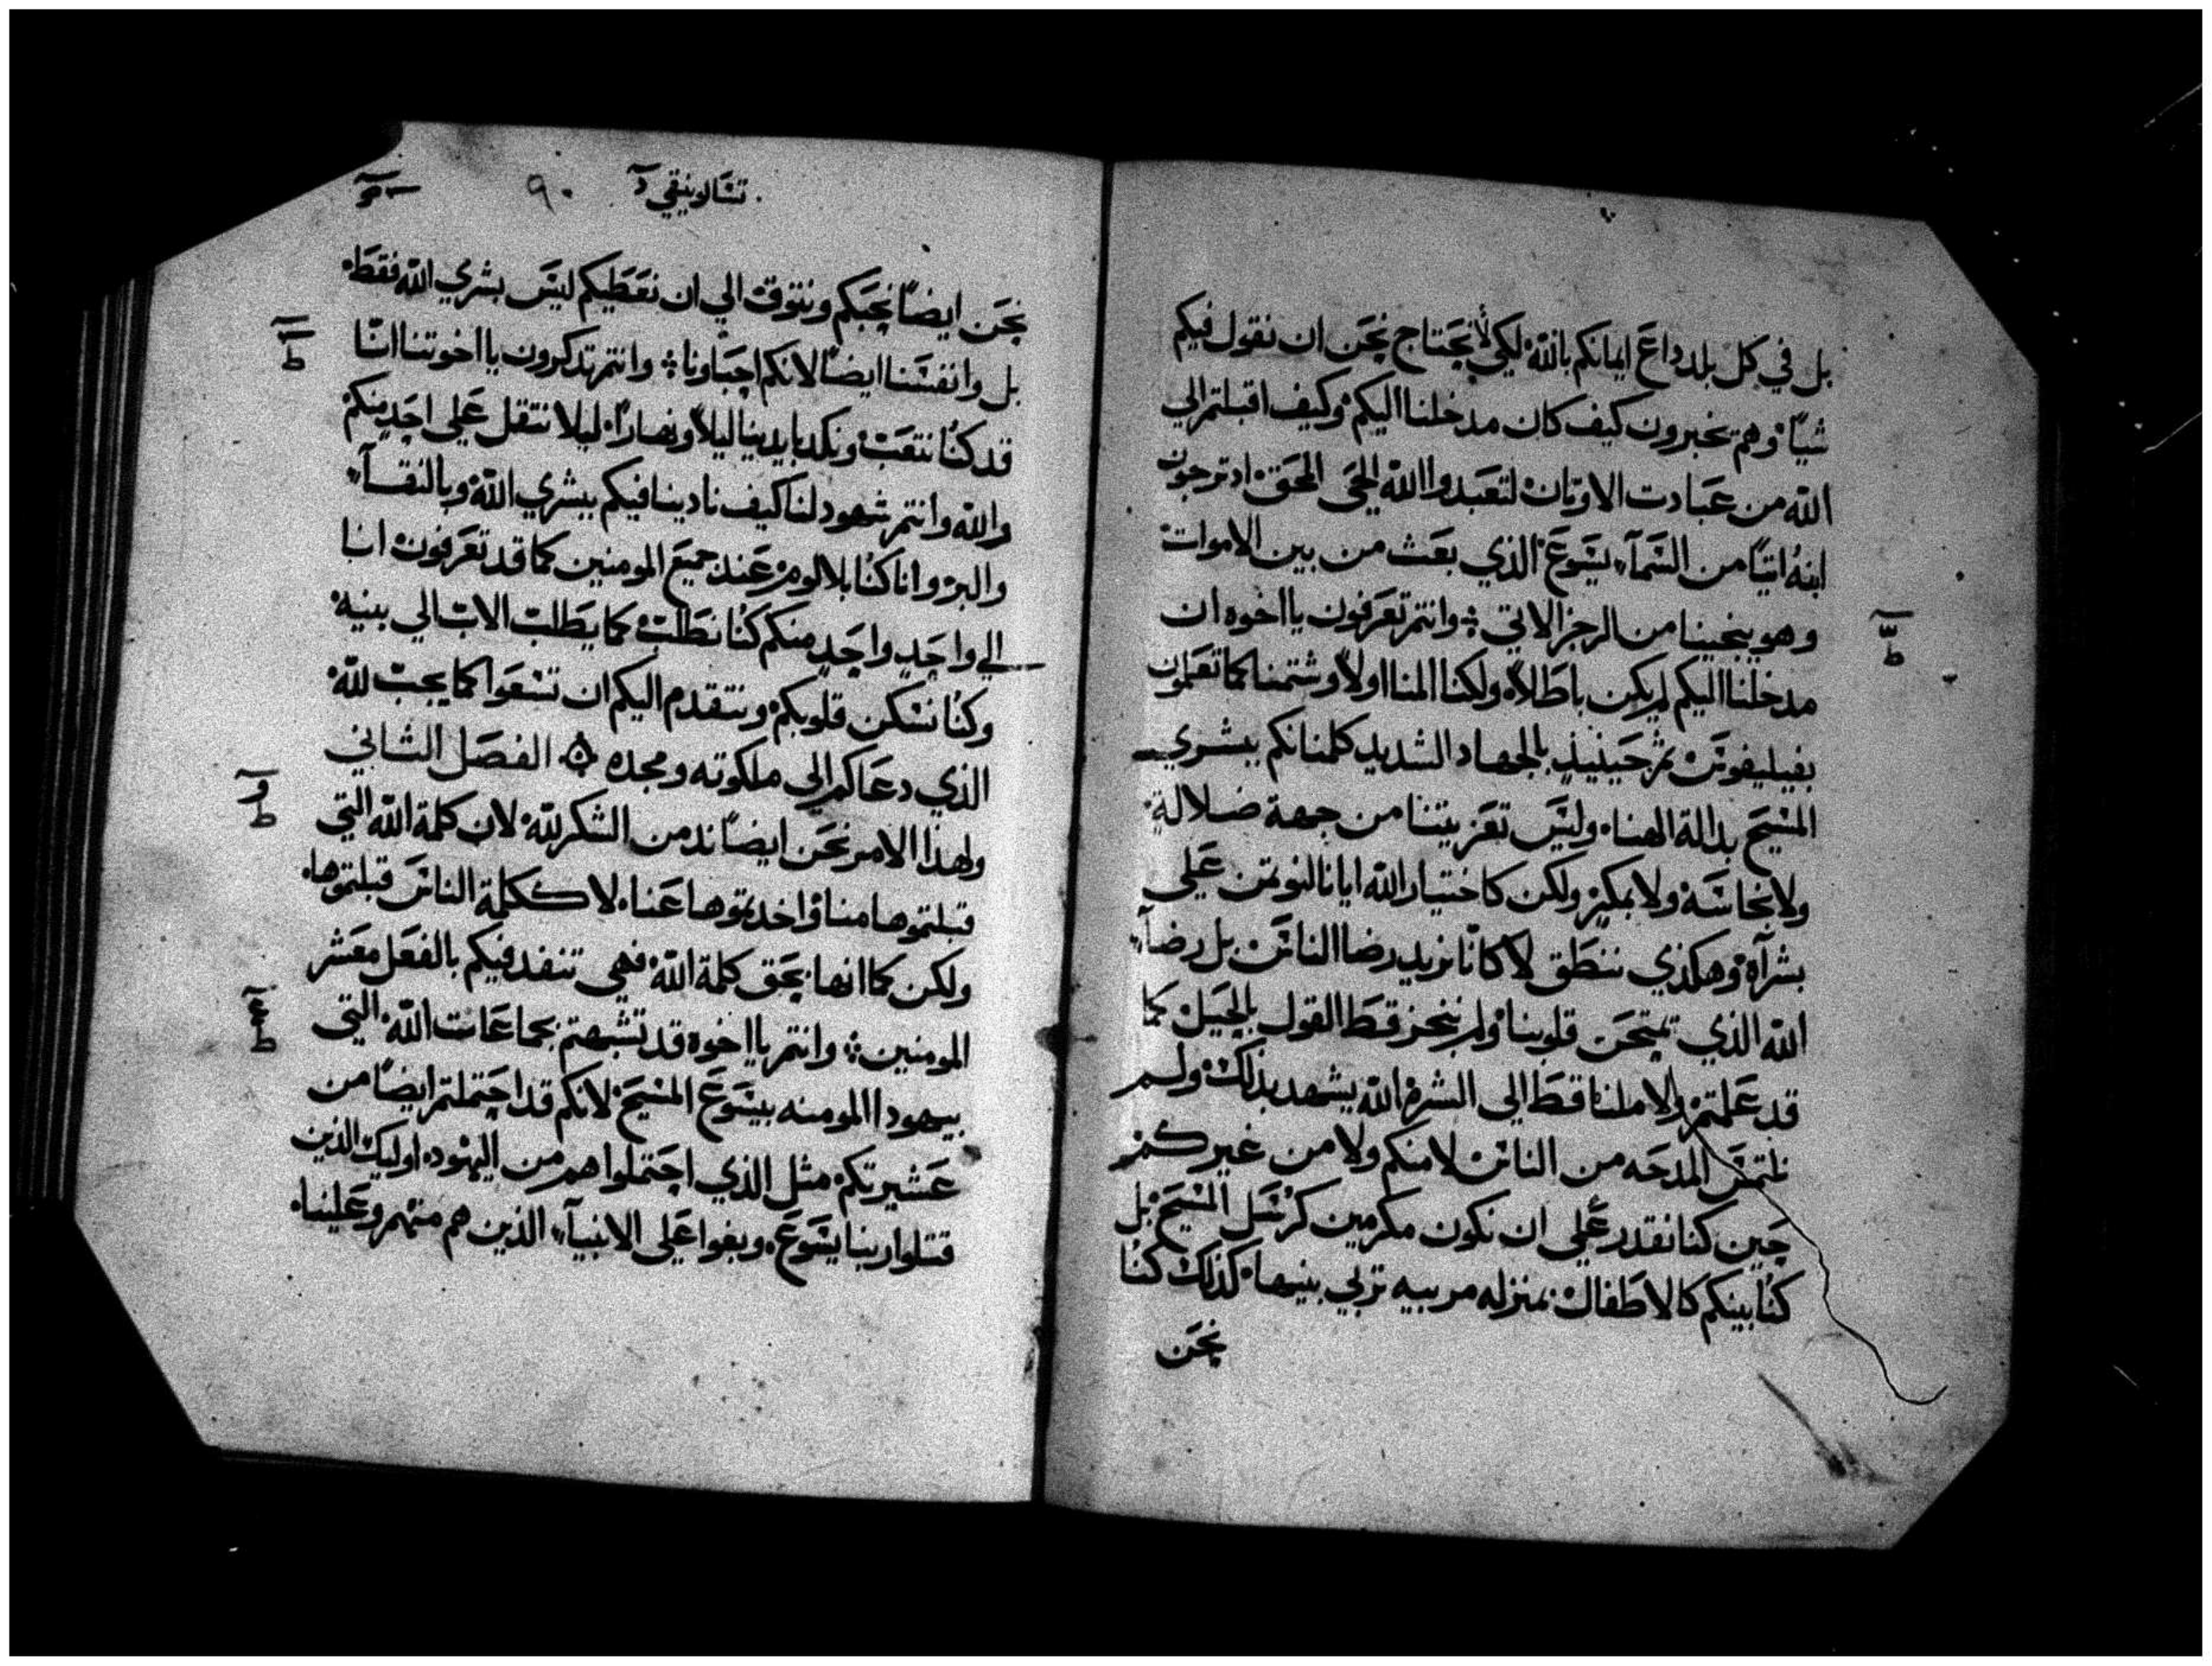 بل في كل بلد داع ايمانكم بالله لكي لا نحتاج نحن ان نقول فيكم
شيًا وهم يخبرون كيف كان مدخلنا اليكم وكيف اقبلتم الي
الله من عبادت الاوتان لتعبدوا الله الحي المحق اد ترجون
ابنهُ اتيًا من السمآء يسوع الذي بعث من بين الاموات
وهو ينجينا من الرجز الاتي وانتم تعرفون يا اخوه ان
مدخلنا اليكم لم يكن باطلاً ولكنا المنا اولاً وشتمنا كما تعلمون
بفيليفوس ثم حينيذٍ بالجهاد الشديد كلمنانكم ببشري
المسيح بدالة الهنا وليس تعزيتنا من جهة ضلالةٍ
ولا نجاسه ولا بمكرٍ ولكن كاختيار الله ايانا لنوتمن علي
بشراه وهكذي ننطق لا كانّا نريد رضا الناس بل رضآء
الله الذي يمتحن قلوبنا ولم ننحز قط القول بالحيل كما
قد علمتم ولا ملنا قط الي الشره الله يشهد بذلك ولم
نلتمس المدحه من الناس لا منكم ولا من غيركم
حين كنا نقدر علي ان نكون مكرمين كرسل المسيح بل
كنُا بينكم كالاطفال بمنزله مربيه تربي بنيها كذلك كنُا
نحن
تسالونيقي ٩٠
نحن ايضاً نحبكم ونتوق الي ان نعطيكم ليس بشري الله فقط
بل وانفسنا ايضاً لانكم احباونا وانتم تدكرون يا اخوتنا انّنا
قد كنُا نتعب ونكد بايدينا ليلاً ونهاراً ليلا نتقل علي احدٍ منكم
والله وانتم شهود لنا كيف نادينا فيكم ببشري الله وبالنقآء
والبر وانا كنُا بلا لوم عند جميع المومنين كما قد تعرفون انا
الي واحدٍ واحدٍ منكم كنُا نطلب كما يطلب الاب الي بنيه
وكنُا نسكن قلوبكم ونتقدم اليكم ان تسعوا كما يجب لله
الذي دعاكم الي ملكوته ومجده الفصل الثاني
ولهذا الامر نحن ايضاً ندمن الشكر لله لان كلمة الله التي
قبلتموها منا واخدتموها عنا لا ككلمة الناس قبلتموها
ولكن كما انها بحق كلمة الله فهي تنفد فيكم بالفعل معشر
المومنين وانتم يا اخوه قد تشبهتم بجماعات الله التي
بيهودا المومنه بيسوع المسيح لانكم قد احتملتم ايضاً من
عشيرتكم مثل الذي احتملوا هم من اليهود اوليك الذين
قتلوا ربنا يسوع وبغوا علي الانبيآء الذين هم منهم وعلينا